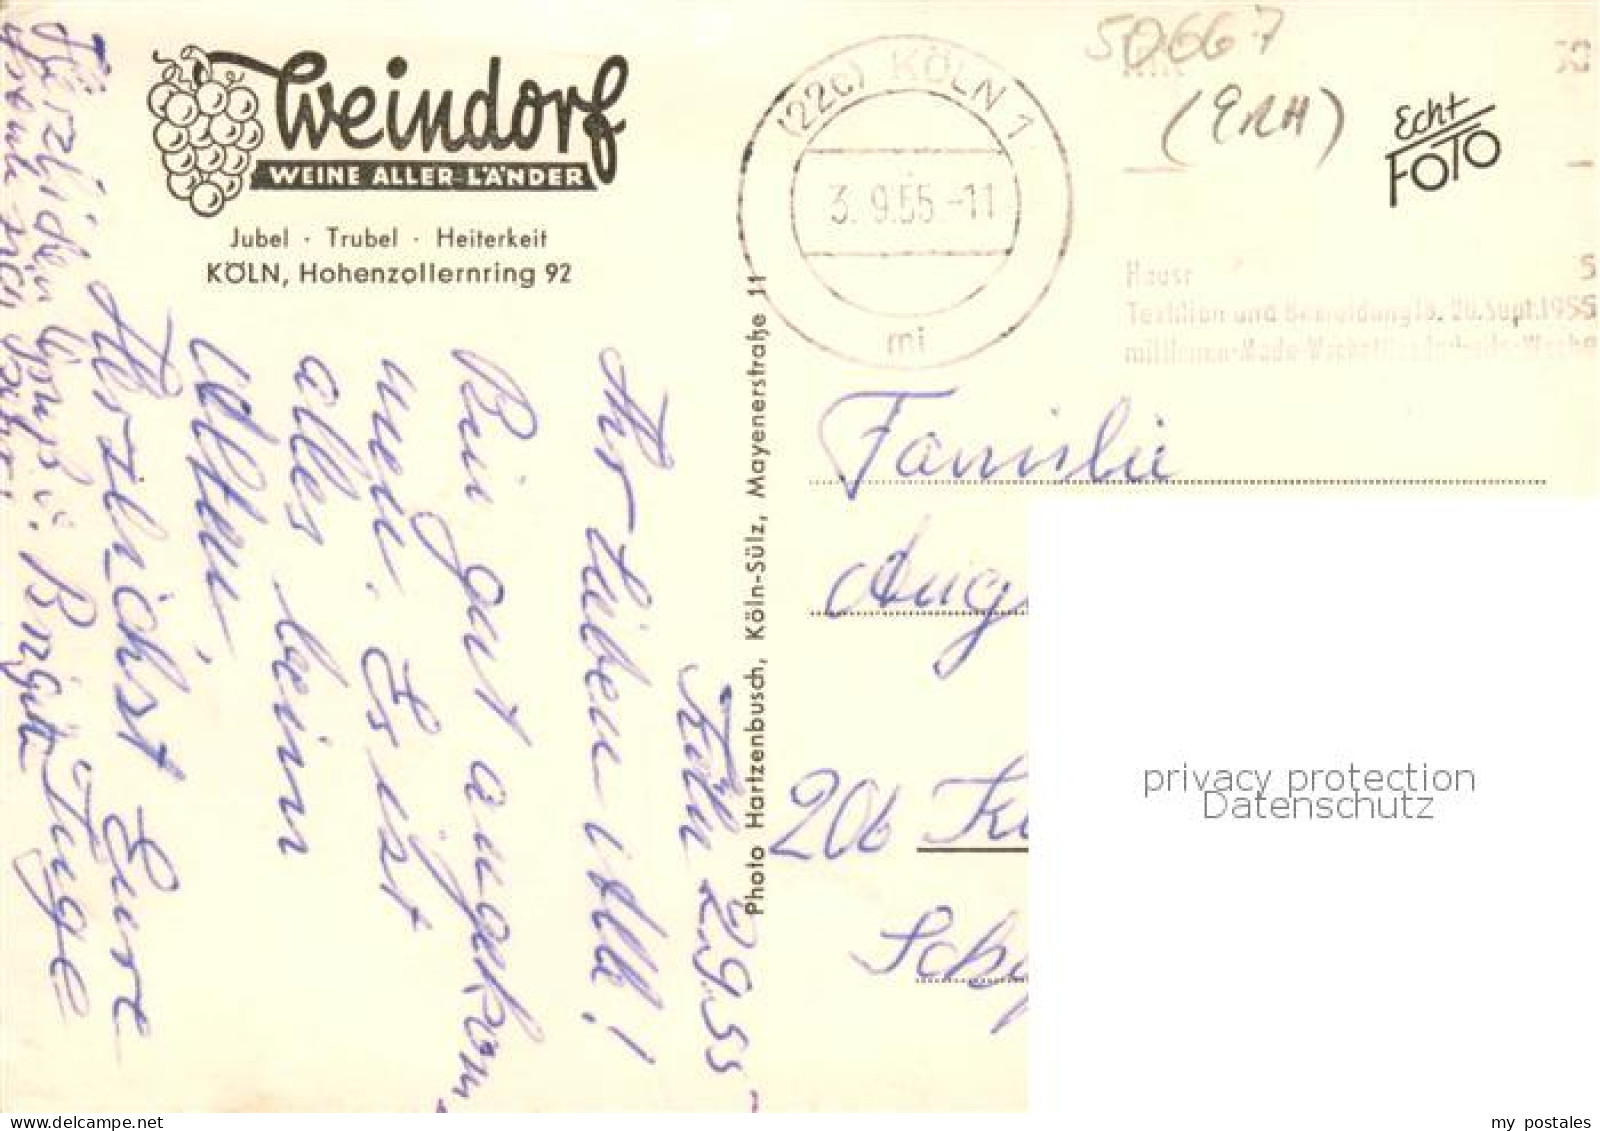 Weindorf
WEINE ALLER LÄNDER
Jubel · Trubel · Heiterkeit
KÖLN, Hohenzollernring 92
(22c) KÖLN 1
3. 9.55 -11
mi
50667
(ERH)
Echt
FOTO
Hausr
Textilien und Bekleidung 18. 20. Sept. 1955
Photo Hartzenbusch, Köln-Sülz, Mayenerstraße 11
Köln 2.9.55
Ihr lieben Alle!
Bin gut angekom
men. Es ist
alles beim
alten.
Herzlichst Eure
Inge
Herzlichen Gruß
u. Brigitte
Familie
Aug
20b
privacy protection
Datenschutz
my postales
www.delcampe.net